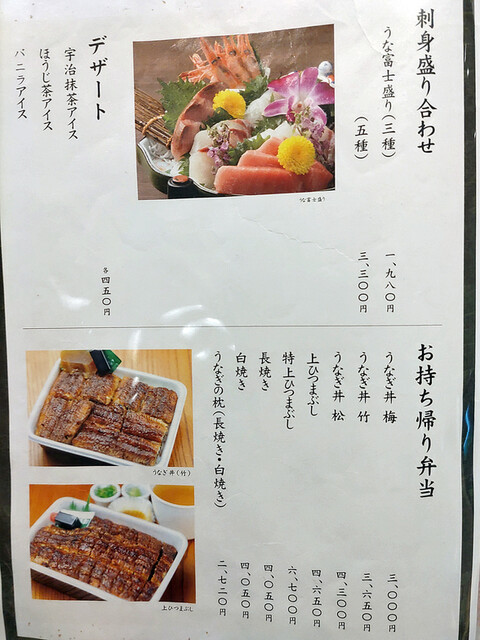 刺身盛り合わせ
うな富士盛り（三種）
一、九八〇円
（五種）
三、三〇〇円
うな富士盛り
デザート
宇治抹茶アイス
ほうじ茶アイス
バニラアイス
各四五〇円
お持ち帰り弁当
うなぎ丼 梅
三、〇〇〇円
うなぎ丼 竹
三、六五〇円
うなぎ丼 松
四、三〇〇円
上ひつまぶし
四、六五〇円
特上ひつまぶし
六、七〇〇円
長焼き
四、〇五〇円
白焼き
四、〇五〇円
うなぎの枕（長焼き・白焼き）
二、七二〇円
うなぎ丼（竹）
上ひつまぶし